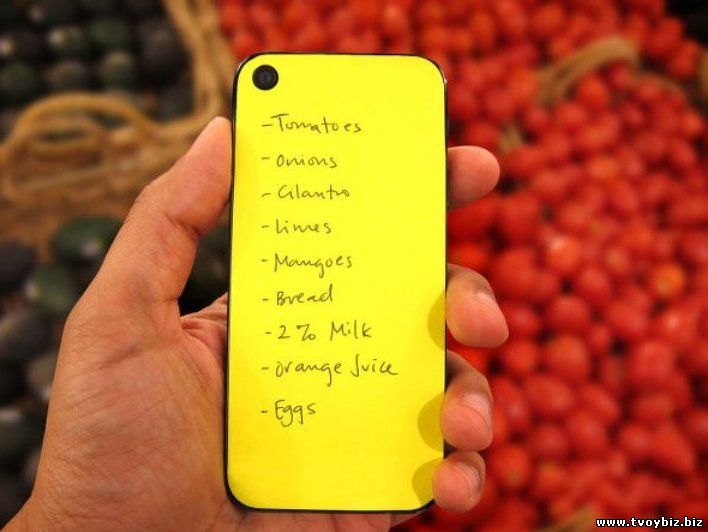 - Tomatoes
- Onions
- Cilantro
- Limes
- Mangoes
- Bread
- 2% Milk
- Orange Juice
- Eggs
www.tvoybiz.biz